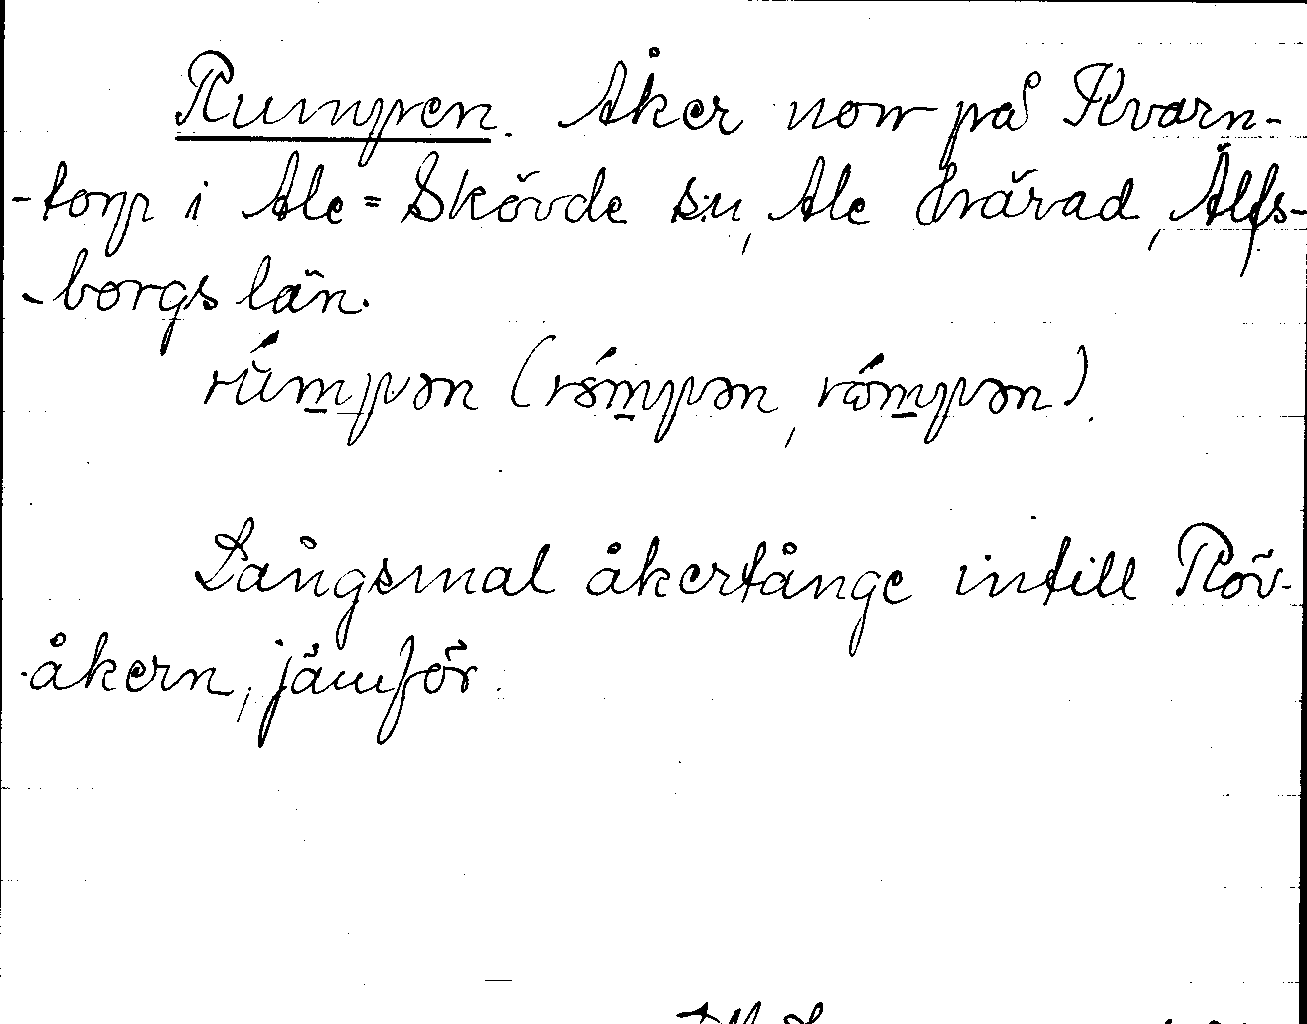 Rumpen. Åker norr på Kvarn-
-torp i Ale-Skövde sn, Ale härad, Älfs-
-borgs län.
rúm̲pən (rɵ́m̲pən, rǿm̲pən).
Långsmal åkertånge intill Röv-
åkern, jämför.